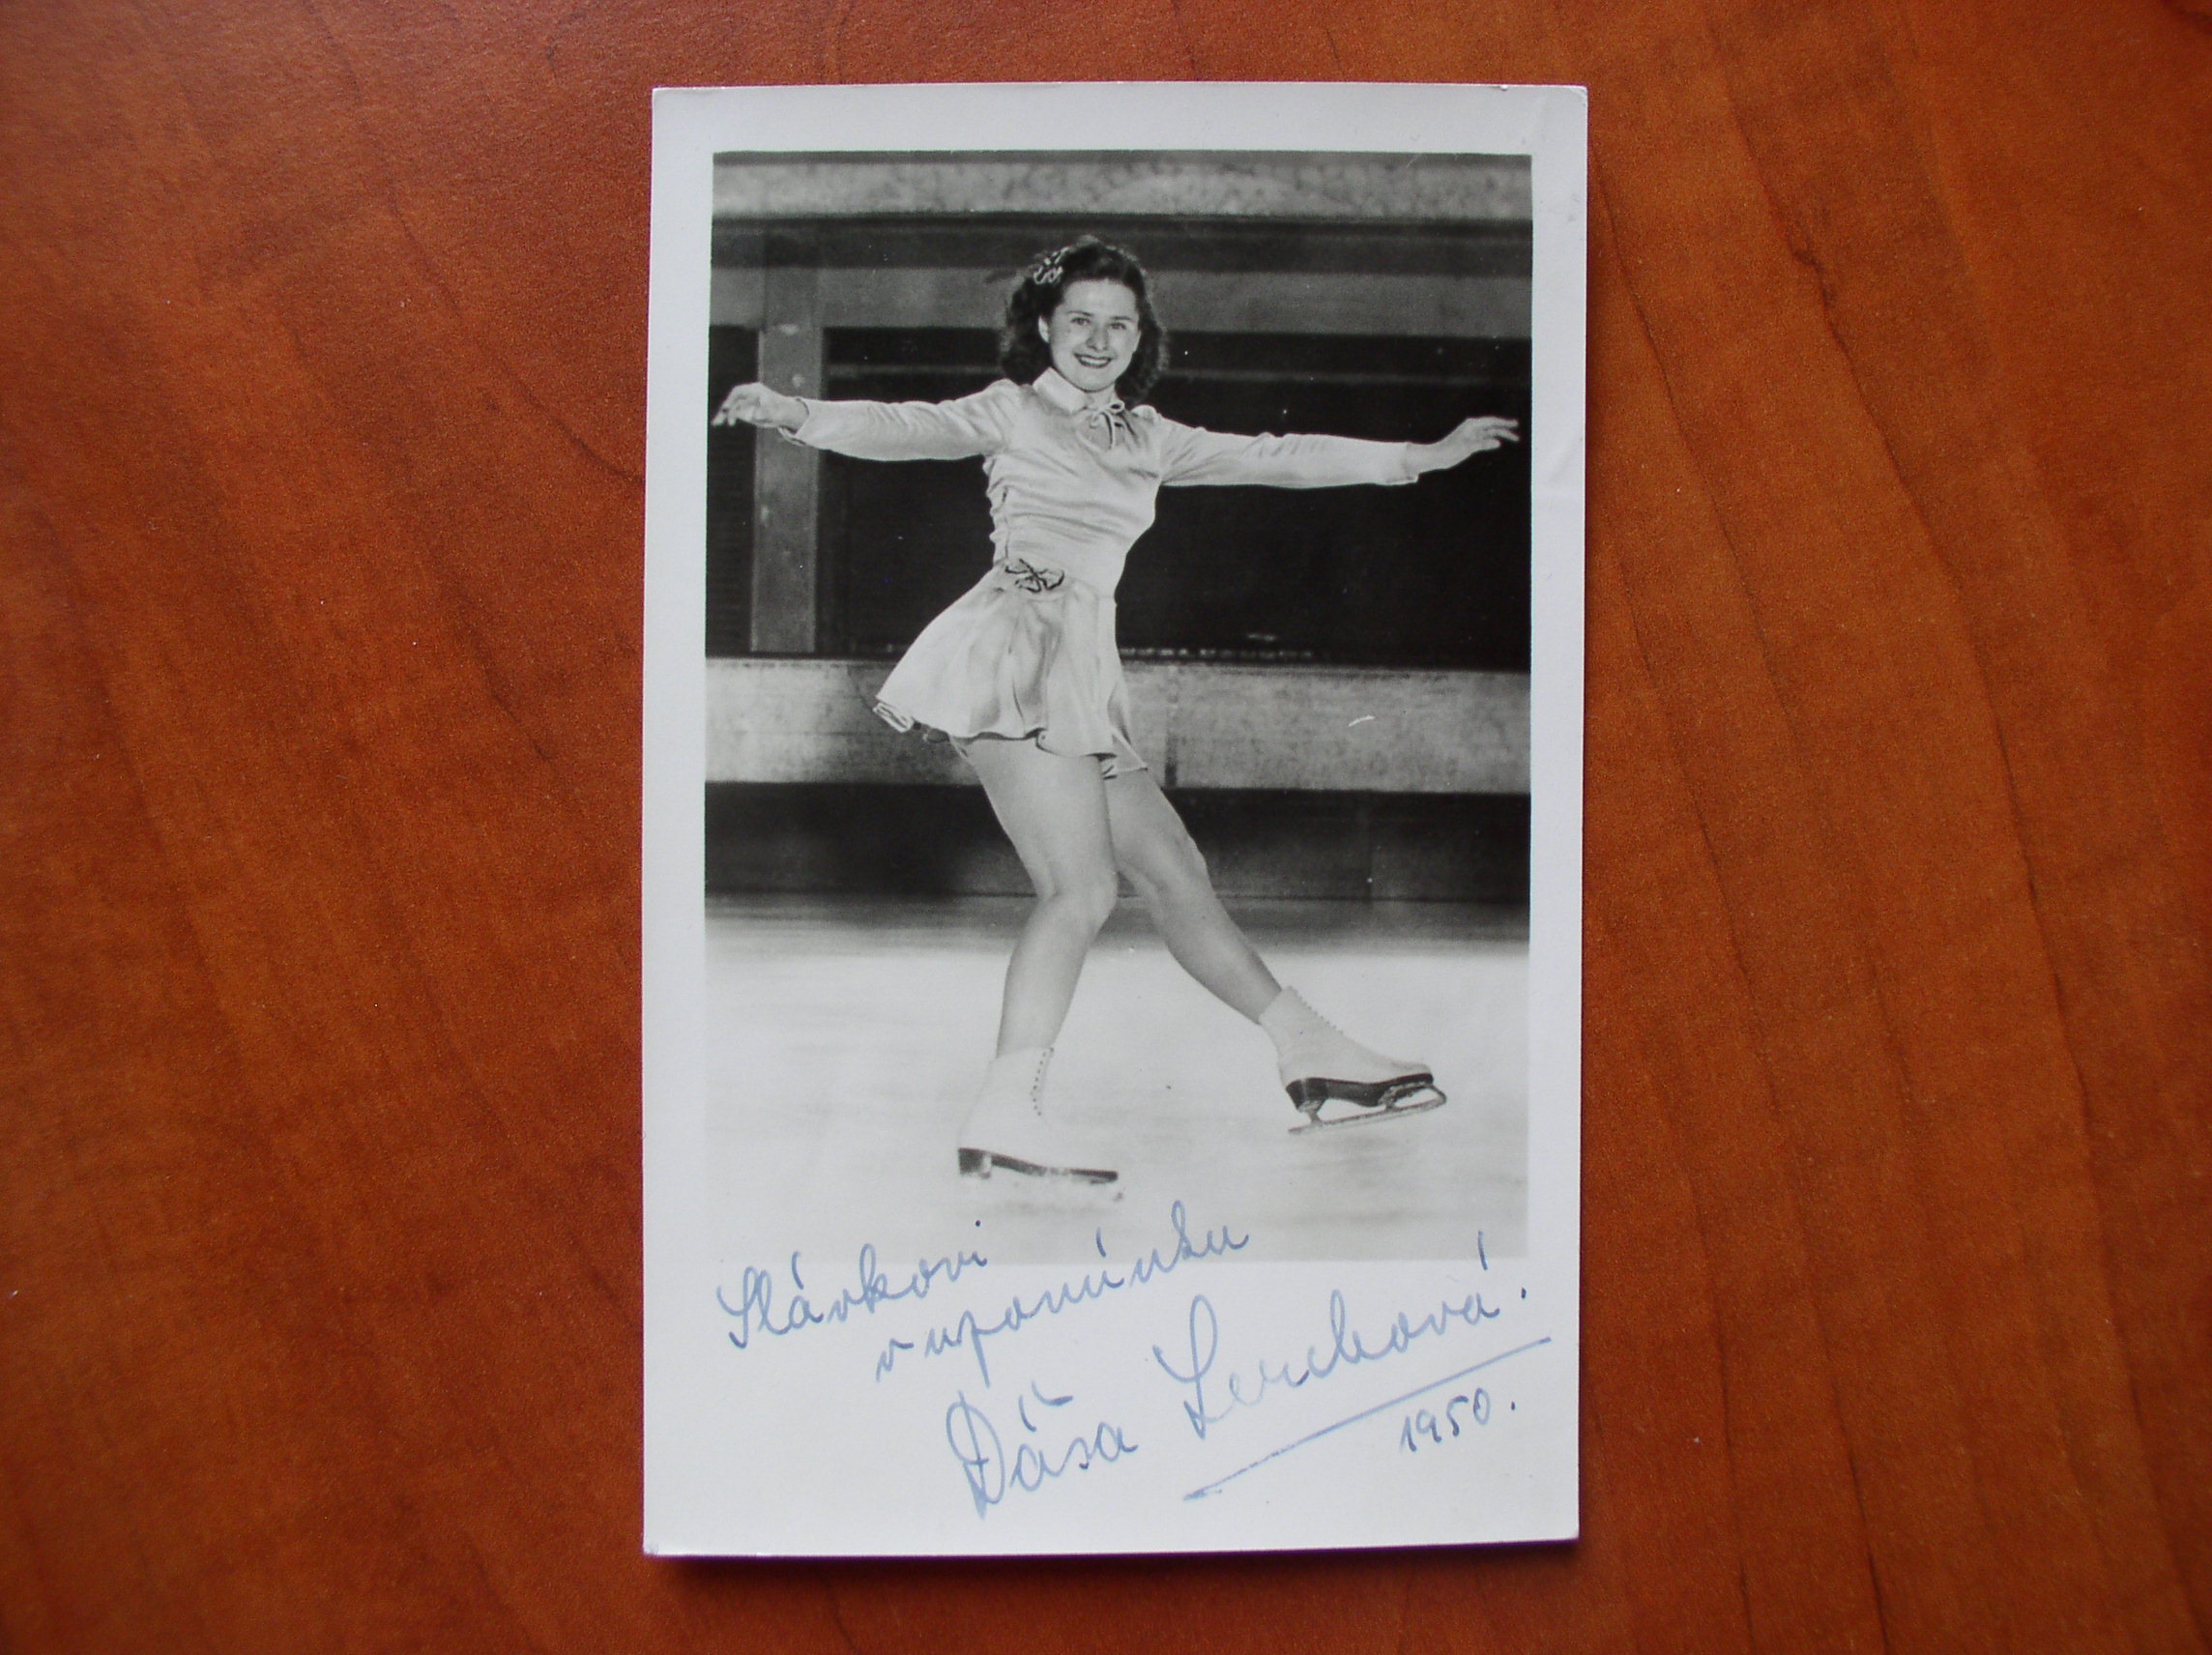 Slávkovi
v upomínku
Dáša Lerchová.
1950.